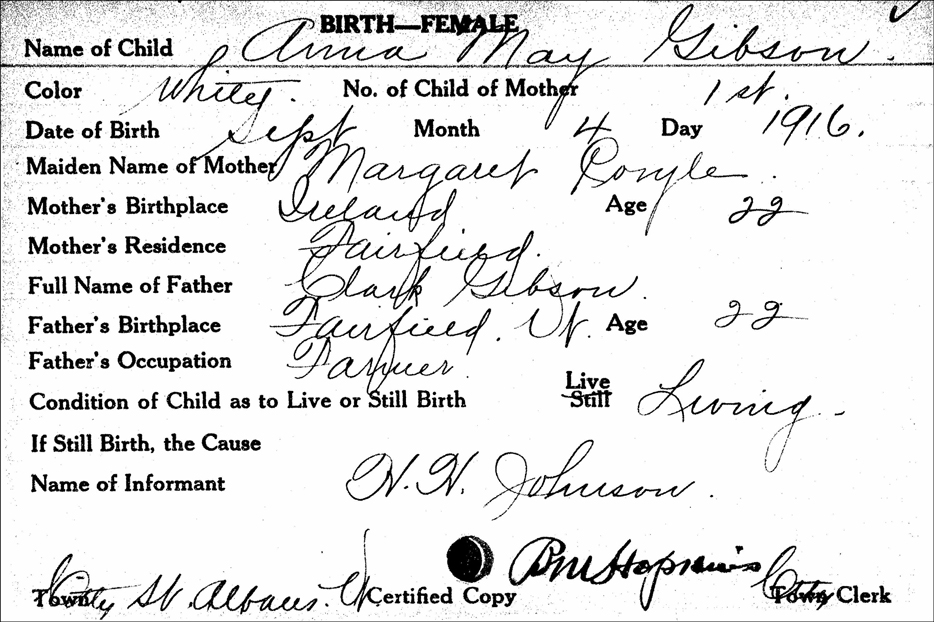 BIRTH—FEMALE
Name of Child Anna May Gibson.
Color White. No. of Child of Mother 1st.
Date of Birth Sept Month 4 Day 1916.
Maiden Name of Mother Margaret
Mother's Birthplace Ireland Age 22
Mother's Residence Fairfield.
Full Name of Father Clark Gibson.
Father's Birthplace Fairfield. Vt. Age 22
Father's Occupation Farmer.
Condition of Child as to Live or Still Birth Live Still Living.
If Still Birth, the Cause
Name of Informant H. H. Johnson.
Town City St. Albans. Vt Certified Copy Town City Clerk